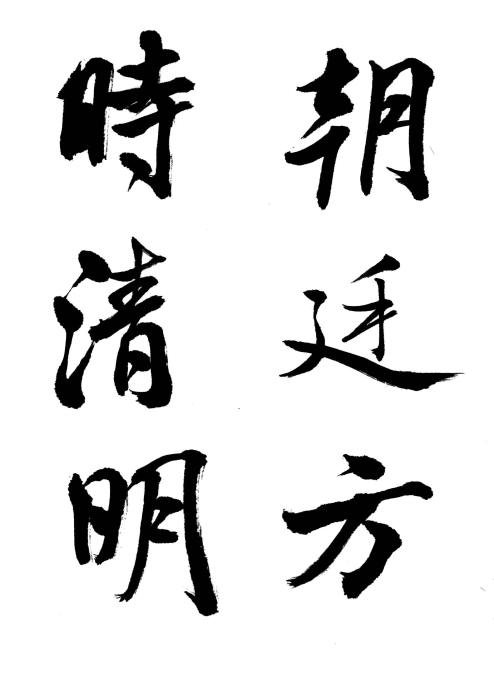 朝廷方
時清明